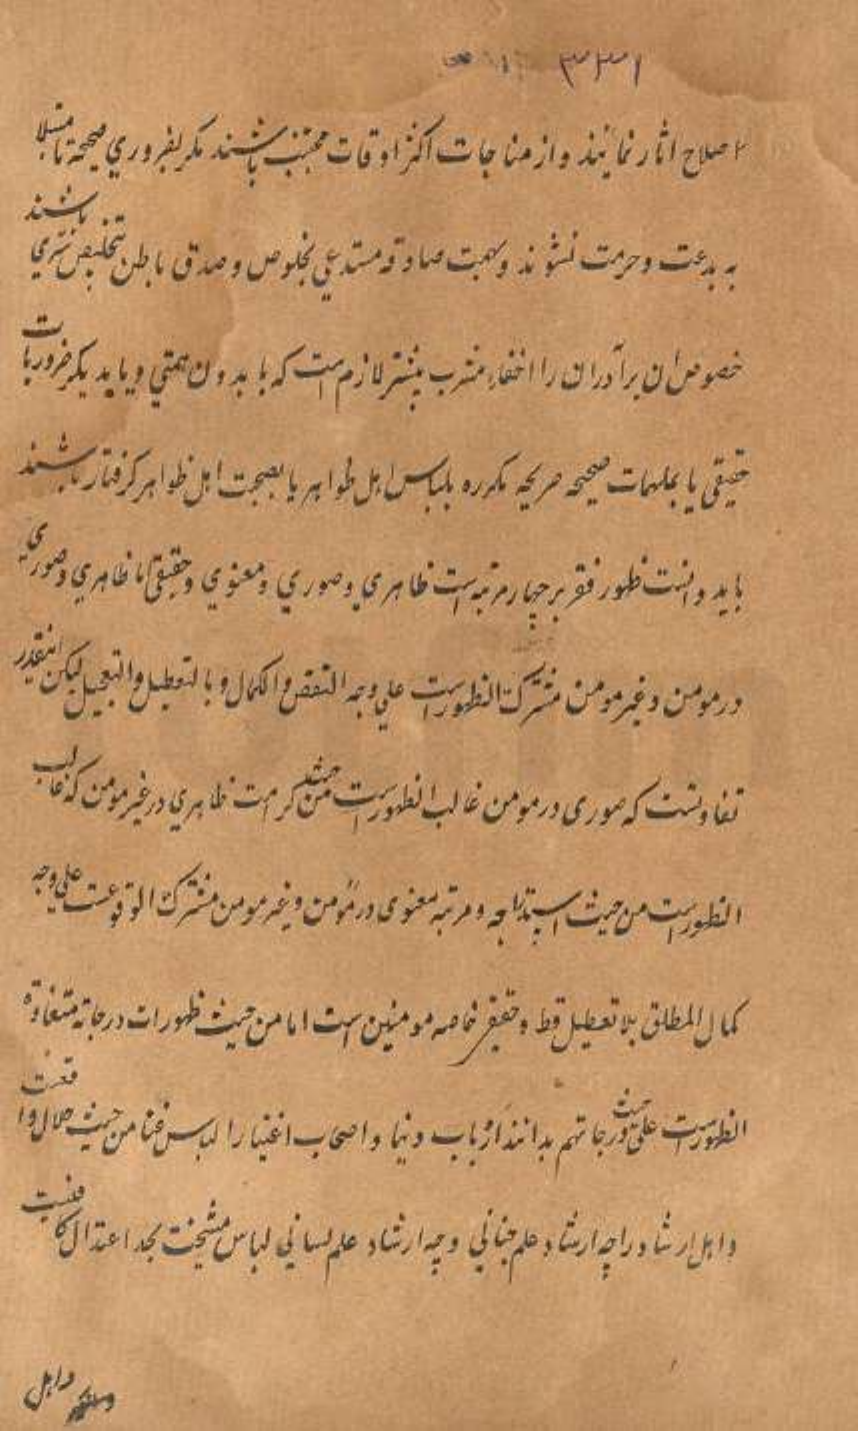 ۳۳۱
اصلاح اثار نمایند و از مناجات اکثر اوقات مجتنب باشند مکر بضروری صحیحه تا مبتلا
به بدعت و حرمت نشوند و بهمت صادقه مستدعی بخلوص و صدق باطن باشند
خصوص ان برادران را اخفاء مشرب بیشتر لازم است که با بدون همتی و یا بدیکر ضروریات
حقیقی یا بعلمات صحیحه صریحه مکرره بلباس اهل ظواهر یا بصحبت اهل ظواهر کرفتار باشند
باید دانست ظهور فقر بر چهار مرتبه است ظاهری و صوری و معنوی و حقیقی اما ظاهری و صوری
در مومن و غیر مومن مشترک الظهور است علی وجه النقص والکمال و بالتعطیل والتعجیل لیکن اینقدر
تفاوتست که صوری در مومن غالب الظهور است من حیث کرامت ظاهری در غیر مومن که غالب
الظهور است من حیث استدراجه و مرتبه معنوی در مومن و غیر مومن مشترک الوقوعست علی وجه
کمال المطلق بلا تعطیل قط و حقیقی خاصه مومنین است اما من حیث ظهورات درجاته متفاوة
الظهور است علی حیث درجاتهم بدانند ارباب دنیا و اصحاب اغنیا را لباس غنا من حیث حلال و
و اهل ارشاد را چه ارشاد علم جنانی و چه ارشاد علم لسانی لباس مشیخت بحد اعتدال
و اهل